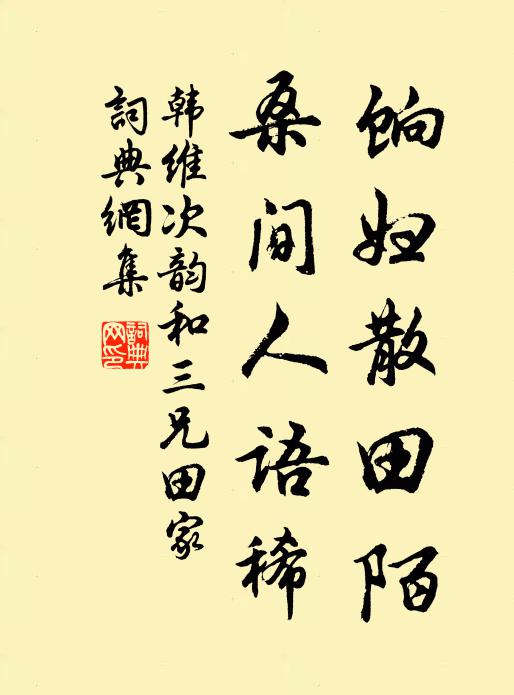 饷妇散田陌
桑间人语稀
韩维次韵和三兄田家
詞典網集
詞典
网印